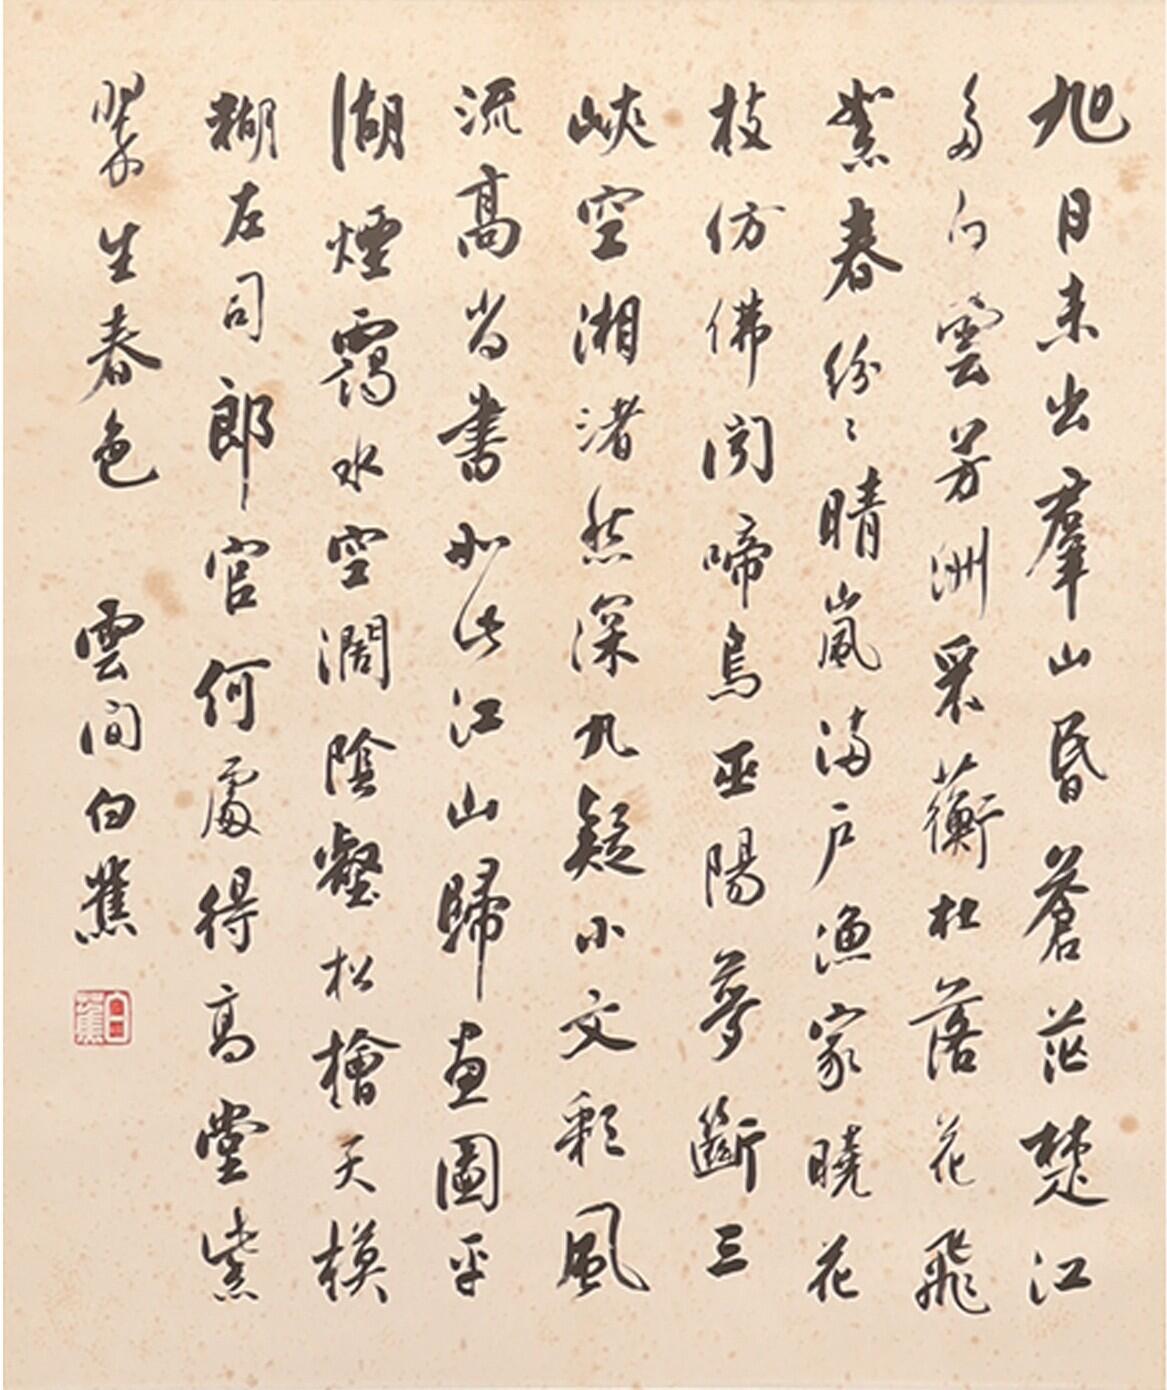 旭日未出羣山昏蒼茫楚江
多白雲芳洲采蘅杜落花飛
絮春紛〻晴嵐滿戶漁家曉花
枝仿佛聞啼鳥巫陽夢斷三
峽空湘渚愁深九疑小文彩風
流高尚書如此江山歸畫圖平
湖煙靄水空濶陰壑松檜天模
糊左司郎官何處得高堂紫
翠生春色
雲間白蕉
白蕉